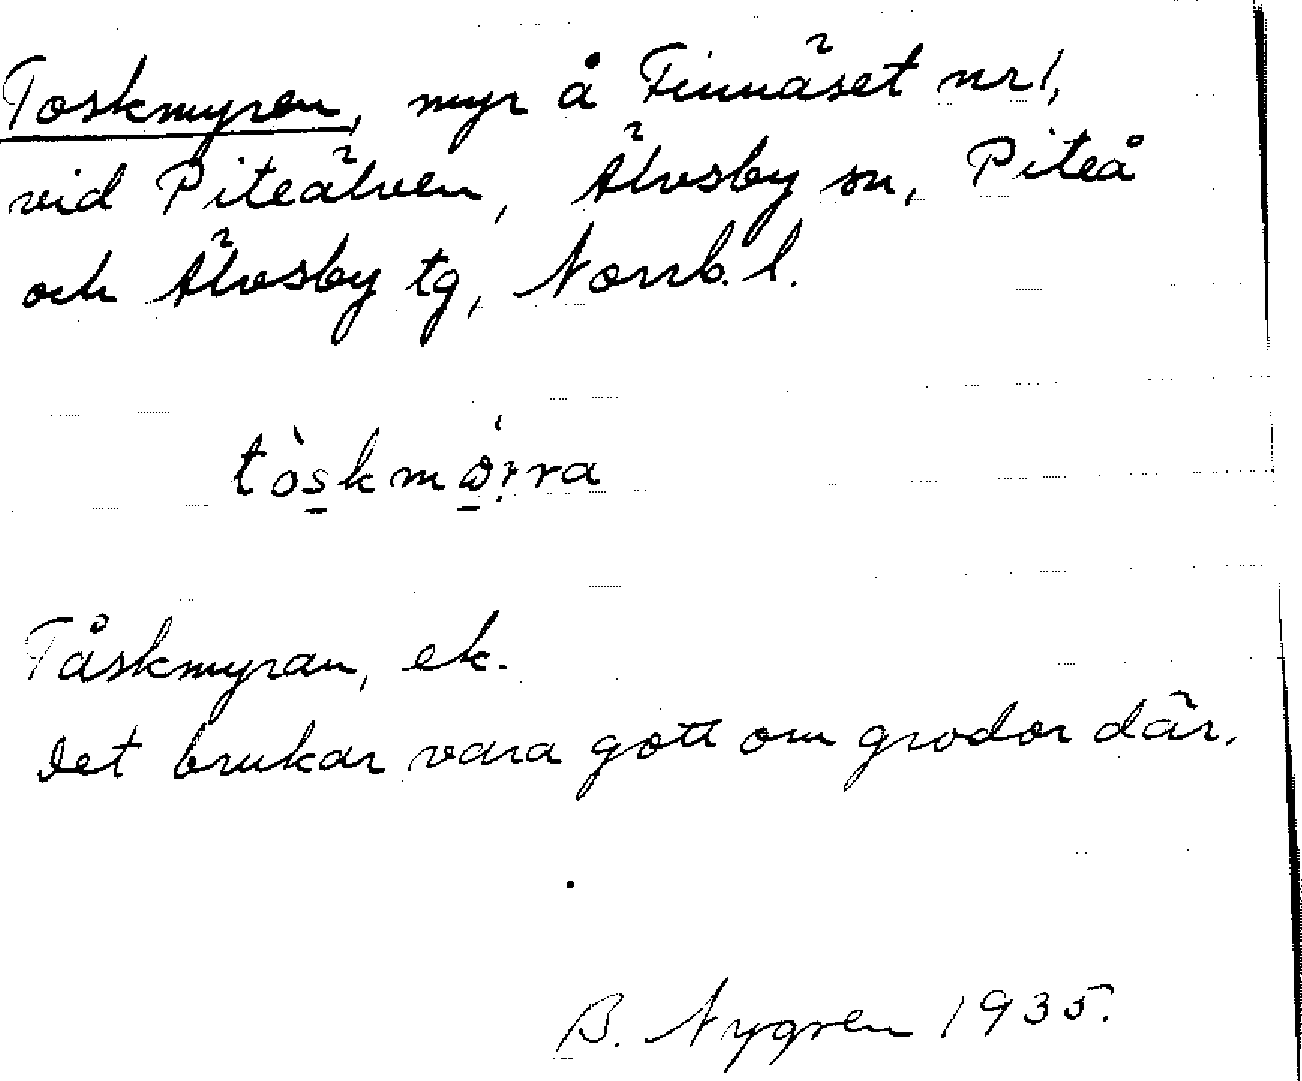 Toskmyren, myr å Finnäset nr 1,
vid Piteälven, Älvsby sn, Piteå
och Älvsby tg, Norrb. l.
Tåskmyran, ek.
Det brukar vara gott om grodor där.
B. Nygren 1935.